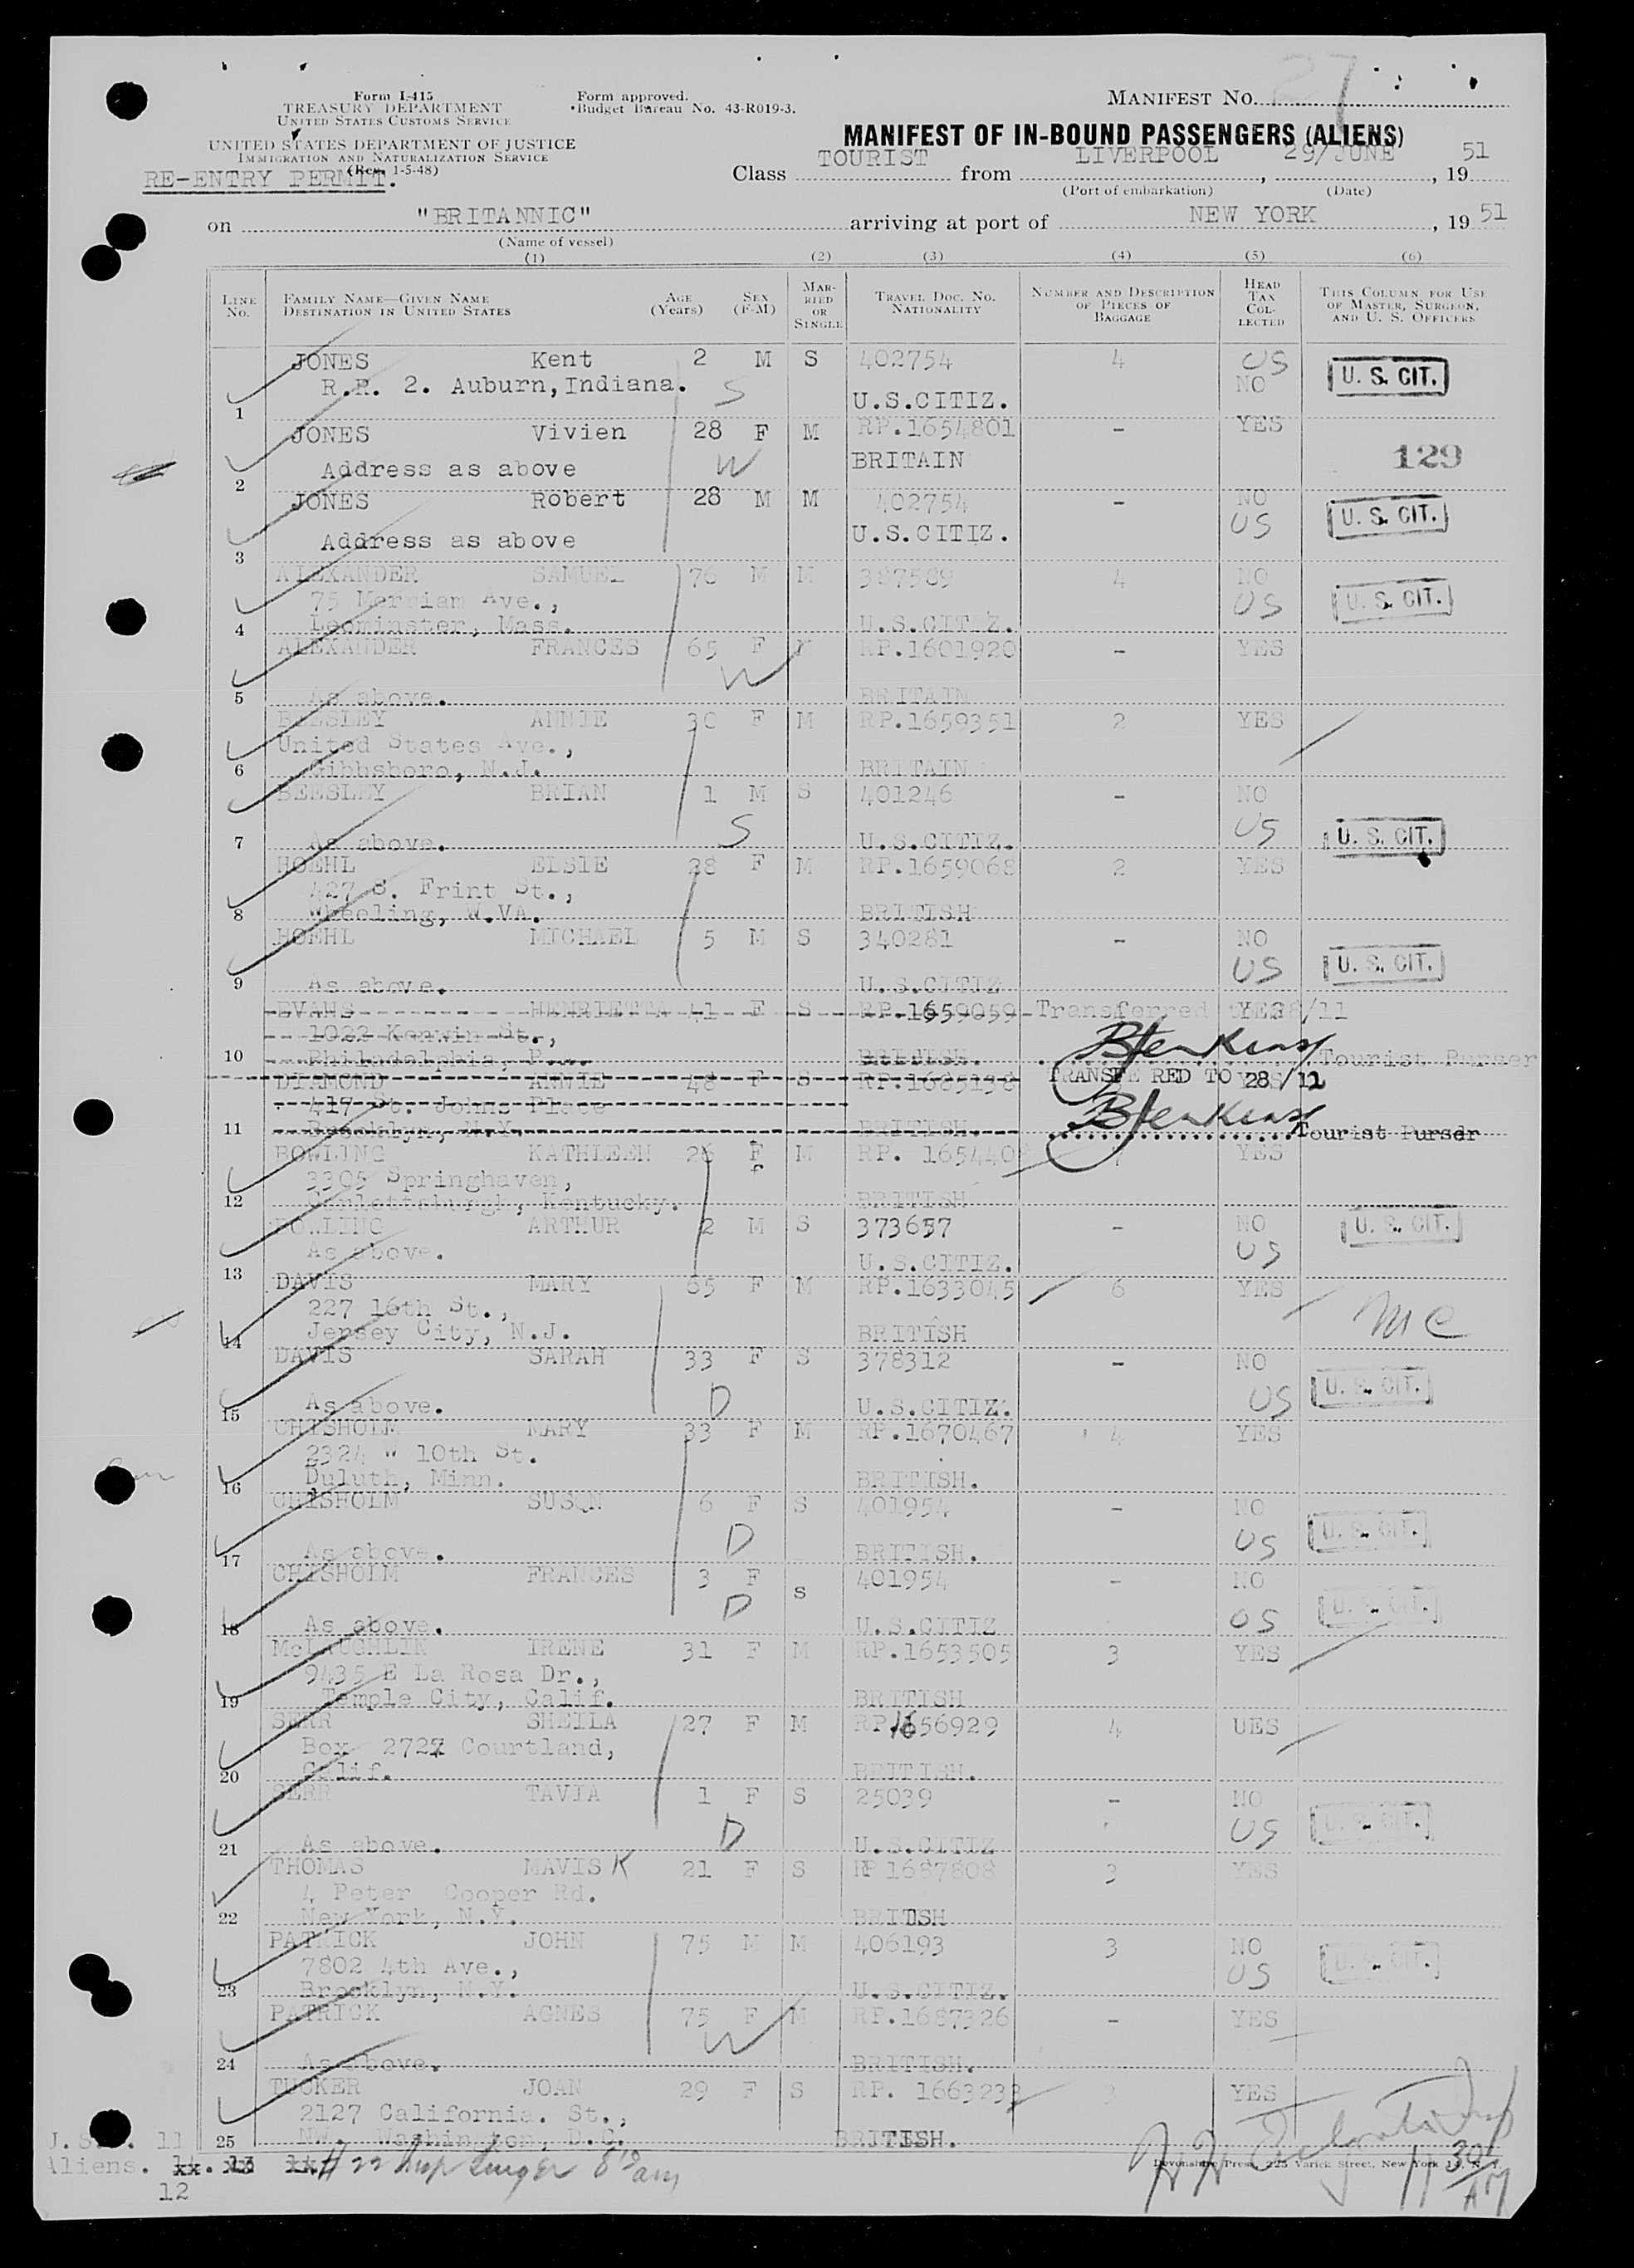 27
Form I-415
TREASURY DEPARTMENT
UNITED STATES CUSTOMS SERVICE
UNITED STATES DEPARTMENT OF JUSTICE
IMMIGRATION AND NATURALIZATION SERVICE
(Rev. 1-5-48)
RE-ENTRY PERMIT.
Form approved.
Budget Bureau No. 43-R019-3.
MANIFEST NO.
MANIFEST OF IN-BOUND PASSENGERS (ALIENS)
Class TOURIST from LIVERPOOL, 29/JUNE, 19 51
(Port of embarkation) (Date)
on "BRITANNIC" arriving at port of NEW YORK, 19 51
(Name of vessel)
(1) (2) (3) (4) (5) (6)
LINE NO. FAMILY NAME—GIVEN NAME DESTINATION IN UNITED STATES AGE (Years) SEX (F-M) MARRIED OR SINGLE TRAVEL DOC. NO. NATIONALITY NUMBER AND DESCRIPTION OF PIECES OF BAGGAGE HEAD TAX COLLECTED THIS COLUMN FOR USE OF MASTER, SURGEON, AND U. S. OFFICERS
JONES Kent 2 M S 402754 4 US
R.R. 2. Auburn, Indiana. S NO U. S. CIT.
1 U.S.CITIZ.
JONES Vivien 28 F M RP.1654801 - YES
Address as above W BRITAIN 129
2
JONES Robert 28 M M 402754 - NO
Address as above U.S.CITIZ. US U. S. CIT.
3
ALEXANDER SAMUEL 76 M M 387589 4 NO
75 Merriam Ave., US U. S. CIT.
4 Leominster, Mass. U.S.CITIZ.
ALEXANDER FRANCES 65 F M RP.1601920 - YES
W
5 As above. BRITAIN
BEESLEY ANNIE 30 F M RP.1659351 2 YES
United States Ave.,
6 Gibbsboro, N.J. BRITAIN
BEESLEY BRIAN 1 M S 401246 - NO
7 As above. S U.S.CITIZ. US U. S. CIT.
HOEHL ELSIE 28 F M RP.1659068 2 YES
427 S. Frint St.,
8 Wheeling, W.VA. BRITISH
HOEHL MICHAEL 5 M S 340281 - NO
US U. S. CIT.
9 As above. U.S.CITIZ
EVANS HENRIETTA 41 F S RP.1659059 Transferred to 28/11 YES
1022 Kerwin St.,
10 Philadelphia, BRITISH. BJenkins Tourist Purser
DIAMOND ANNIE 48 F S RP.1685138 TRANSFE RED TO 28/12
417 St. Johns Place
11 Brooklyn, N.Y. BRITISH. BJenkins Tourist Purser
BOWLING KATHLEEN 26 F M RP. 165440 YES
3305 Springhaven,
12 Catlettsburgh, Kentucky. BRITISH
BOWLING ARTHUR 2 M S 373657 - NO U. S. CIT.
As above. U.S.CITIZ. US
13
DAVIS MARY 65 F M RP.1633045 6 YES
227 16th St.,
14 Jersey City, N.J. BRITISH MC
DAVIS SARAH 33 F S 378312 - NO
15 As above. D U.S.CITIZ. US U. S. CIT.
CHISHOLM MARY 33 F M RP.1670467 4 YES
2324 W 10th St.
16 Duluth, Minn. BRITISH.
CHISHOLM SUSQN 6 F S 401954 - NO
D US U. S. CIT.
17 As above. BRITISH.
CHISHOLM FRANCES 3 F S 401954 - NO
D
18 As above. U.S.CITIZ US U. S. CIT.
McLAUGHLIN IRENE 31 F M RP.1653505 3 YES
9435 E La Rosa Dr.,
19 Temple City, Calif. BRITISH
SERR SHEILA 27 F M RP1656929 4 UES
Box 2727 Courtland,
20 Calif. BRITISH.
SERR TAVIA 1 F S 25039 - NO
D US U. S. CIT.
21 As above. U.S.CITIZ
THOMAS MAVIS K 21 F S RP 1687808 3 YES
4 Peter Cooper Rd.
22 New York, N.Y. BRITISH
PATRICK JOHN 75 M M 406193 3 NO
7802 4th Ave., US U. S. CIT.
23 Brooklyn, N.Y. U.S.CITIZ.
PATRICK AGNES 75 F M RP.1687326 - YES
W
24 As above. BRITISH.
TUCKER JOAN 29 F S RP. 1663233 3 YES
2127 California. St.,
25 NW. Washington, D.C. BRITISH.
11
Aliens. 12
Devonshire Press, 225 Varick Street, New York 14, N. Y.
11 30 AM